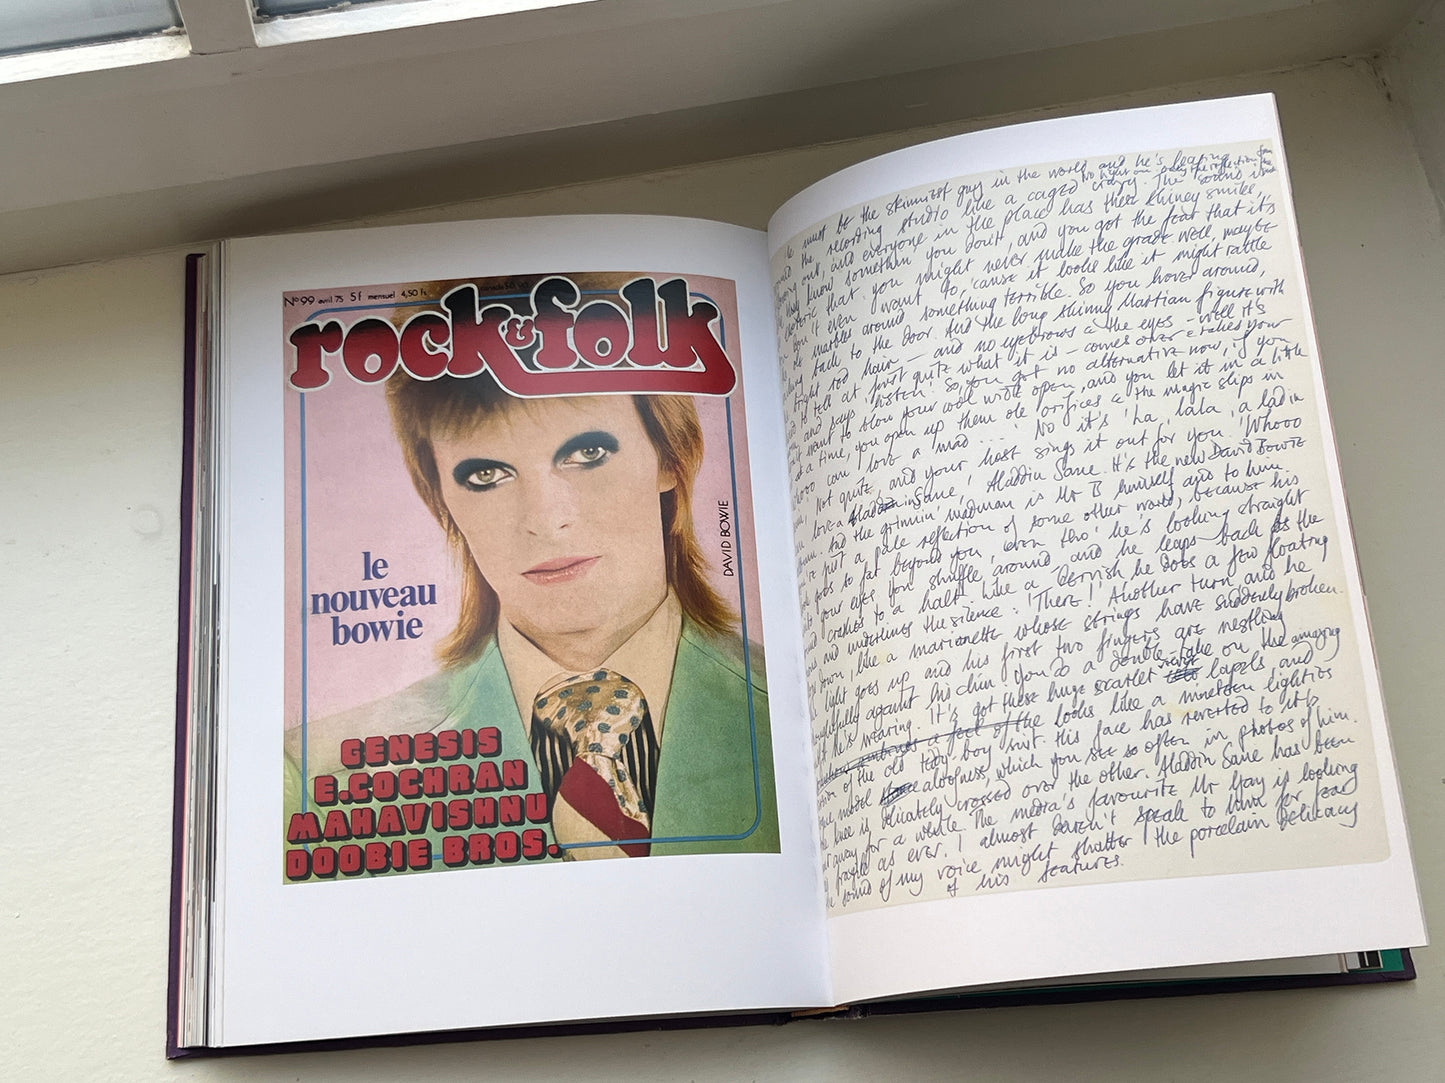 N°99 avril 75 5f mensuel 4,50 fs
canada $0,90
rock & folk
DAVID BOWIE
le
nouveau
bowie
GENESIS
E.COCHRAN
MAHAVISHNU
DOOBIE BROS.
must be the skinniest guy in the world and he's
No light on only the reflection from the
the recording studio like a caged crazy. The sound is
out, and everyone in the place has these shiney smiles,
they know something you don't, and you got the fear that it's
esoteric that you might never make the grade. Well, maybe
don't even want to, 'cause it looks like it might rattle
ole marbles around something terrible. So you hover around,
back to the door. And the long skinny Martian figure with
bright red hair — and no eyebrows & the eyes — well it's
to tell at just quite what it is — comes over & rakes your
and says 'listen'. So, you got no alternative now, if you
want to blow your cool wide open, and you let it in a little
at a time, you open up them ole orifices & the magic slips in
whooo can love a mad .... ' No it's 'ha, lala, a lad in
Not quite, and your host sings it out for you. 'Whooo
love a Aladdin Sane, Aladdin Sane. It's the new David Bowie
And the grinnin' madman is Mr B himself and to him
you're just a pale reflection of some other world, because his
goes so far beyond you, even tho' he's looking straight
into your eyes. You shuffle around — and he leaps back as the
crashes to a halt. Like a dervish he does a few floating
and underlines the silence: 'There!' Another turn and he,
down, like a marionette whose strings have suddenly broken.
light goes up and his first two fingers are nestling
against his chin. You do a double-take on the amazing
he's wearing. It's got these huge scarlet lapels, and
a feel of the looks like a nineteen eighties
version of the old teddy-boy suit. His face has reverted to its
model aloofness, which you see so often in photos of him.
knee is delicately crossed over the other. Aladdin Sane has been
away for a while. The media's favourite Mr Gay is looking
fragile as ever. I almost daren't speak to him for fear
the sound of my voice might shatter the porcelain delicacy
of his features.